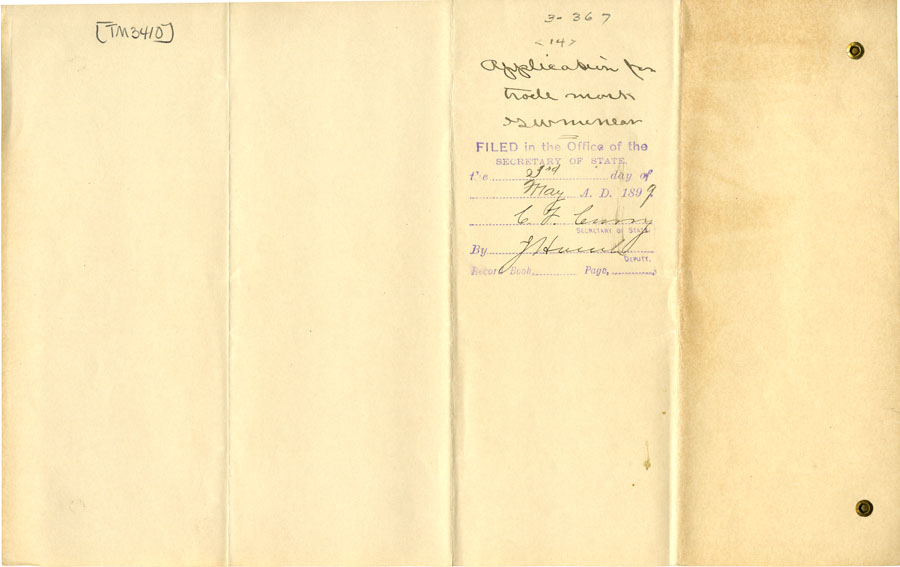 [TM3410]
3-367
<14>
Application for
trade mark
G W McNear
FILED in the Office of the
SECRETARY OF STATE.
the 23rd day of
May A. D. 1899
C. F. Curry
SECRETARY OF STATE
By J Hoesch
DEPUTY.
Record Book, Page,